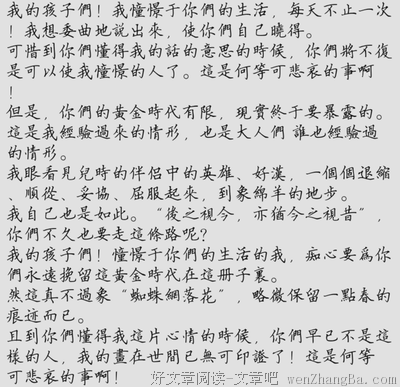 我的孩子們！我憧憬于你們的生活，每天不止一次
！我想委曲地説出來，使你們自己曉得。
可惜到你們懂得我的話的意思的時候，你們將不復
是可以使我憧憬的人了。這是何等可悲哀的事啊
！
但是，你們的黃金時代有限，現實終于要暴露的。
這是我經驗過來的情形，也是大人們 誰也經驗過
的情形。
我眼看見兒時的伴侶中的英雄、好漢，一個個退縮
、順從、妥協、屈服起來，到象綿羊的地步。
我自己也是如此。“後之視今，亦猶今之視昔”，
你們不久也要走這條路呢？
我的孩子們！憧憬于你們的生活的我，痴心要爲你
們永遠挽留這黃金時代在這册子裏。
然這真不過象“蜘蛛網落花”，略微保留一點春的
痕迹而已。
且到你們懂得我這片心情的時候，你們早已不是這
樣的人，我的畫在世間已無可印證了！這是何等
可悲哀的事啊！
好文章阅读-文章吧 wenZhangBa.com